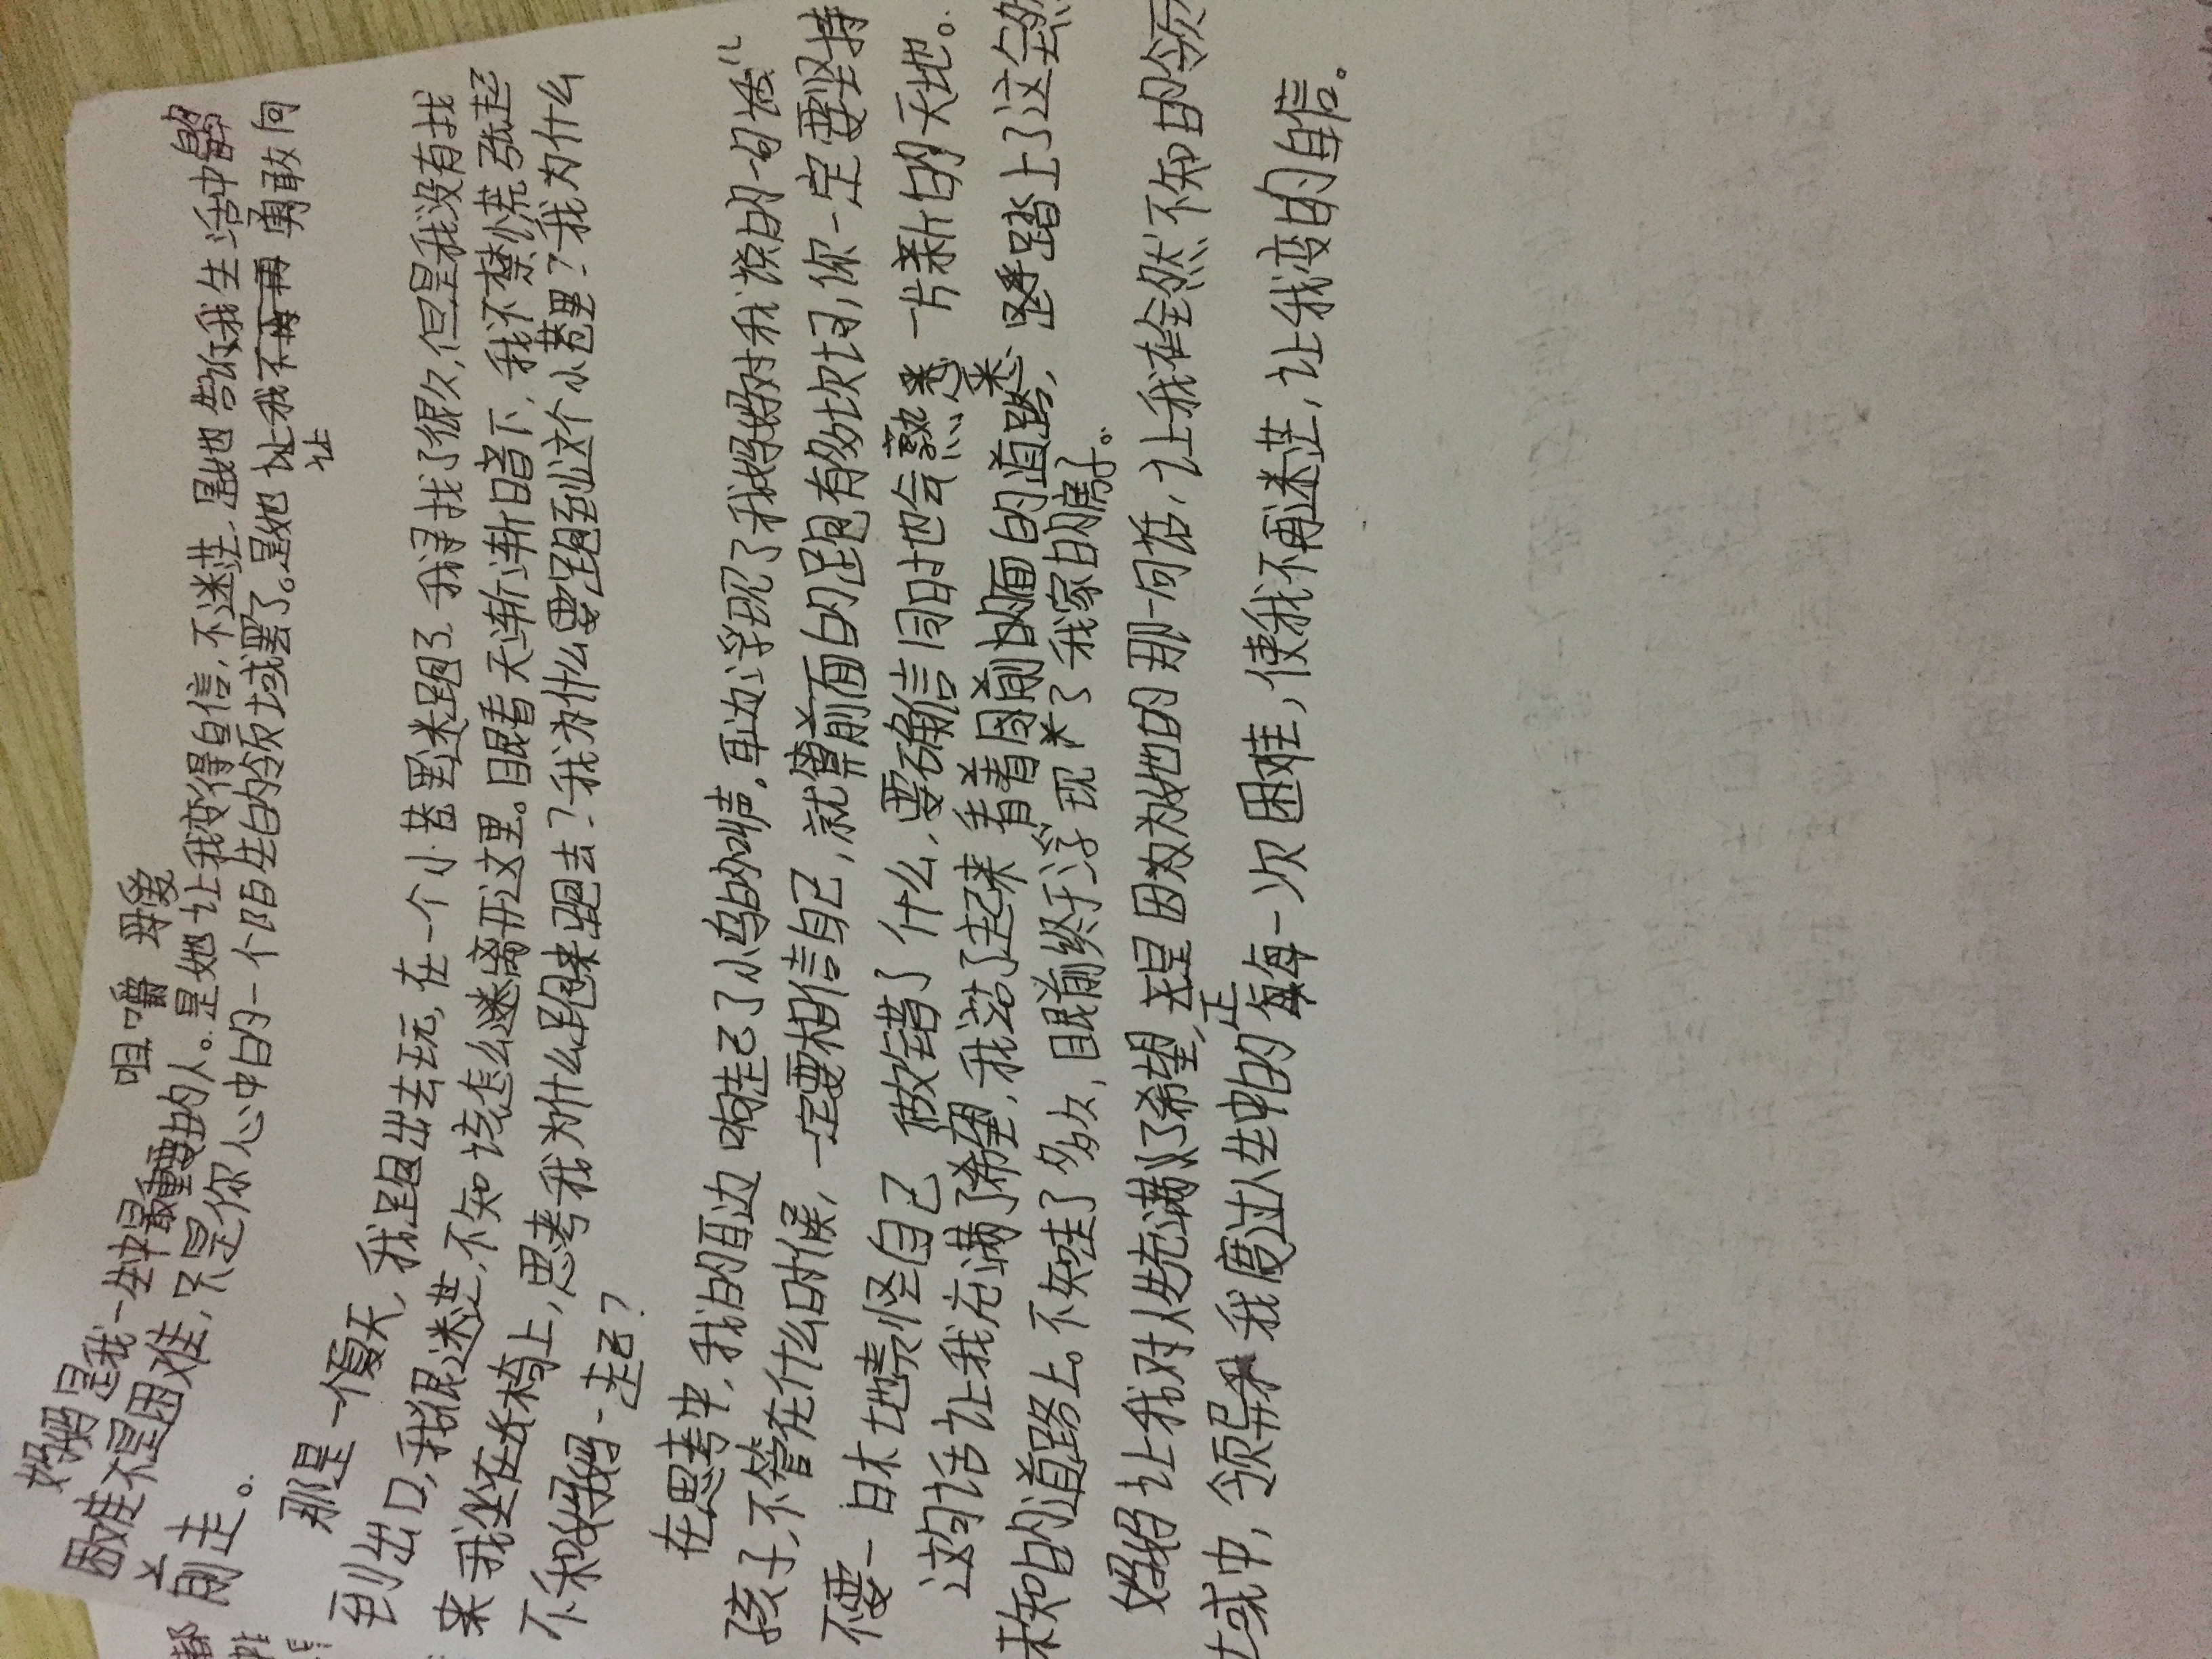 咀嚼 母爱
妈妈是我一生中最重要的人。是她让我变得自信,不迷茫.是她告诉我生活中的
困难不是困难,只是你心中的一个陌生的领域罢了。是她让我不再勇敢向
前走。
那是一个夏天,我跑出去玩,在一个小巷里迷路了.我寻找了很久,但是我没有找
到出口,我很迷茫,不知该怎么离开这里。眼看天渐渐暗下,我不禁慌张起
来我坐在长椅上,思考我为什么跑来跑去?我为什么要跑到这个小巷里?我为什么
不和妈妈一走?
在思考中,我的耳边响起了小鸟的叫声.耳边浮现了我妈妈对我说的一句话“
孩子,不管在什么时候,一定要相信自己,就算前面的跑有多坎坷,你一定要坚持
不要一味地责怪自己做错了什么,要确信同时也会熟悉一片新的天地。
这句话让我充满了希望,我站了起来看着面前的面的道路,坚手踏上了这全然
未知的道路上。不知走了多久,眼前终于浮现了我家的房子。
妈妈让我对人生充满了希望,正是因为她的那一句话,让我在全然不知的领
域中,领导我度过人生中的每一次困难,使我不再迷茫,让我变的自信。